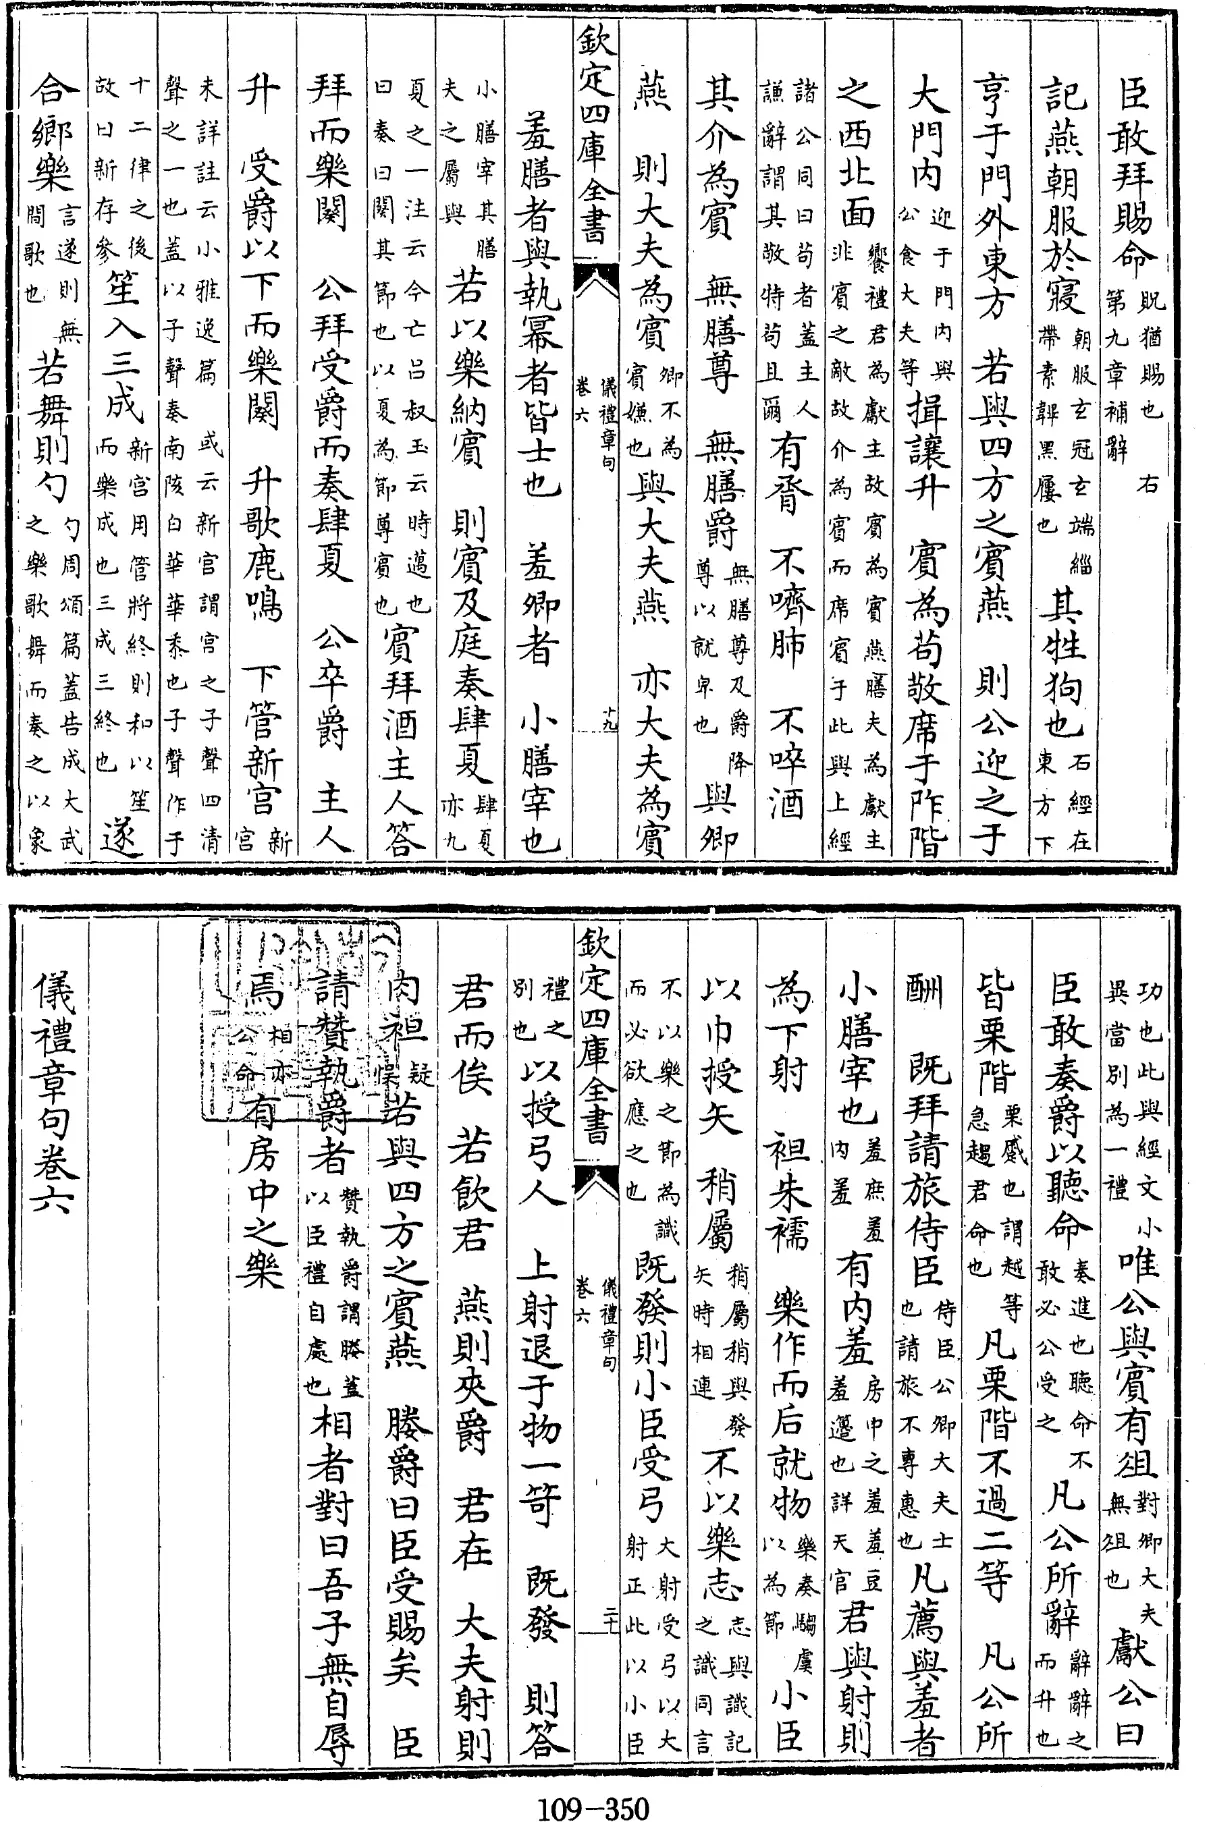 臣敢拜賜命貺猶賜也　右第九章補辭
記燕朝服於寢朝服玄冠玄端緇帶素韠黑屨也其牲狗也石經在東方下
亨于門外東方　若與四方之賓燕　則公迎之于
大門内迎于門内與公食大夫等揖讓升　賓為苟敬席于阼階
之西北面饗禮君為獻主故賓為賓燕膳夫為獻主非賓之敵故介為賓而席賓于此與上經
諸公同曰苟者蓋主人謙辭謂其敬特苟且爾有脀　不嚌肺　不啐酒
其介為賓　無膳尊　無膳爵無膳尊及爵降尊以就卑也與卿
燕　則大夫為賓卿不為賓嫌也與大夫燕　亦大夫為賓
欽定四庫全書　儀禮章句卷六　十九
羞膳者與執冪者皆士也　羞卿者　小膳宰也
小膳宰其膳夫之屬與若以樂納賓　則賓及庭奏肆夏肆夏亦九
夏之一注云今亡呂叔玉云時邁也曰奏曰闋其節也以夏為節尊賓也賓拜酒主人答
拜而樂闋　公拜受爵而奏肆夏　公卒爵　主人
升　受爵以下而樂闋　升歌鹿鳴　下管新宫新宫
未詳註云小雅逸篇　或云新宫謂宫之子聲四清聲之一也蓋以子聲奏南陔白華華黍也子聲作于
十二律之後故曰新存參笙入三成新宫用管將終則和以笙而樂成也三成三終也遂
合鄉樂言遂則無間歌也若舞則勺勺周頌篇蓋告成大武之樂歌舞而奏之以象
功也此與經文小異當別為一禮唯公與賓有俎對卿大夫無俎也獻公曰
臣敢奏爵以聽命奏進也聽命不敢必公受之凡公所辭辭辭之而升也
皆栗階栗蹙也謂越等急趨君命也凡栗階不過二等　凡公所
酬　既拜請旅侍臣侍臣公卿大夫士也請旅不專惠也凡薦與羞者
小膳宰也羞庶羞内羞有内羞房中之羞羞豆羞籩也詳天官君與射則
為下射　袒朱襦　樂作而后就物樂奏騶虞以為節小臣
以巾授矢　稍屬稍屬稍與發矢時相連不以樂志志與識記之識同言
不以樂之節為識而必欲應之也既發則小臣受弓大射受弓以大射正此以小臣
欽定四庫全書　儀禮章句卷六　二十
禮之別也以授弓人　上射退于物一笴　既發　則答
君而俟　若飲君　燕則夾爵　君在　大夫射則
肉袒疑悞若與四方之賓燕　媵爵曰臣受賜矣　臣
請贊執爵者贊執爵謂媵蓋以臣禮自處也相者對曰吾子無自辱
焉相亦公命有房中之樂
儀禮章句卷六
109-350